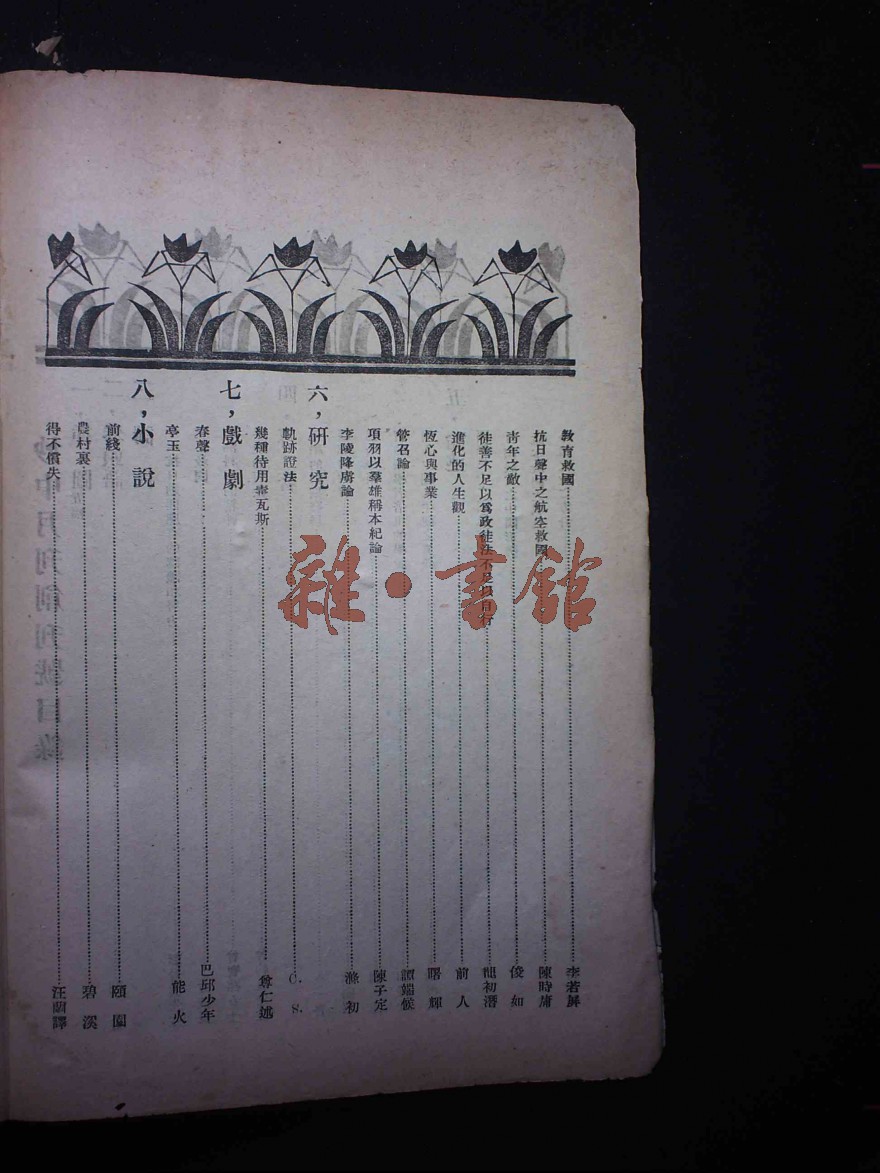 教育救國 李若屏
抗日聲中之航空救國 陳時庸
靑年之敵 俊如
徒善不足以爲政徒法不足以自行 初潛
進化的人生觀 前人
恆心與事業 曙輝
管召論 譚端候
項羽以羣雄稱本紀論 陳子定
李陵降虜論 滌初
六，硏究
軌跡證法 C. S.
幾種待用毒瓦斯 尊仁述
七，戲劇
春聲 巴邱少年
亭玉 能火
八，小說
前綫 頤園
農村裏 碧溪
得不償失 汪蘭譯
雜·書館